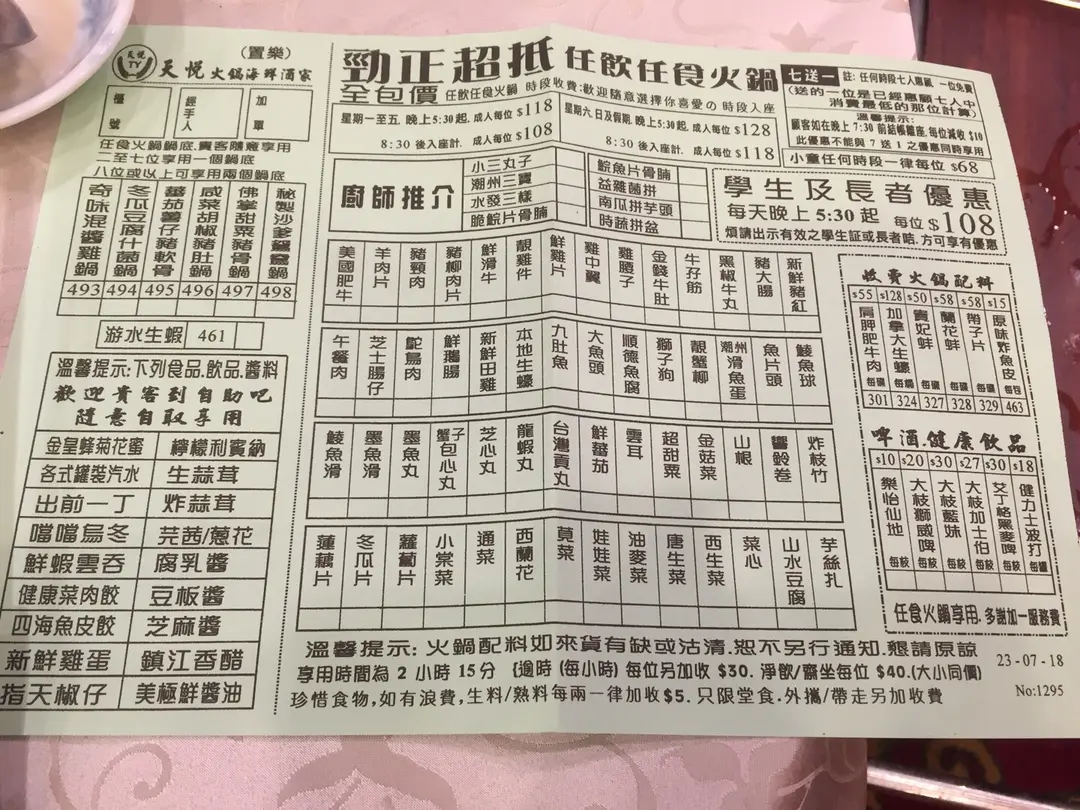 天悅 TY
(置樂)
天悅火鍋海鮮酒家
檯號
經手人
加單
任食火鍋鍋底，貴客隨意享用
二至七位享用一個鍋底
八位或以上可享用兩個鍋底
奇味混醬雞鍋
冬瓜豆腐什菌鍋
蕃茄薯仔豬軟骨
咸菜胡椒豬肚鍋
佛掌甜粟豬骨鍋
秘製沙爹鴛鴦鍋
493 494 495 496 497 498
游水生蝦 461
溫馨提示:下列食品.飲品.醬料
歡迎貴客到自助吧
隨意自取享用
金皇蜂菊花蜜 檸檬利賓納
各式罐裝汽水 生蒜茸
出前一丁 炸蒜茸
噹噹烏冬 芫茜/蔥花
鮮蝦雲吞 腐乳醬
健康菜肉餃 豆板醬
四海魚皮餃 芝麻醬
新鮮雞蛋 鎮江香醋
指天椒仔 美極鮮醬油
勁正超抵 任飲任食火鍋
全包價 任飲任食火鍋 時段收費:歡迎隨意選擇你喜愛の時段入座
星期一至五. 晚上5:30起. 成人每位 $118
8:30 後入座計. 成人每位 $108
星期六.日及假期.晚上5:30起. 成人每位 $128
8:30 後入座計. 成人每位 $118
七送一 註: 任何時段七人惠顧, 一位免費
(送的一位是已經惠顧七人中
消費最低的那位計算)
溫馨提示:
顧客如在晚上 7:30 前結帳離座, 每位減收 $10
此優惠不能與 7 送 1 之優惠同時享用
小童任何時段一律每位 $68
廚師推介
小三丸子
潮州三寶
水發三樣
脆鯇片骨腩
鯇魚片骨腩
益雞菌拼
南瓜拼芋頭
時蔬拼盆
學生及長者優惠
每天晚上 5:30 起 每位 $108
煩請出示有效之學生証或長者咭. 方可享有優惠
美國肥牛
羊肉片
豬頸肉
豬柳肉片
鮮滑牛
靚雞件
鮮雞片
雞中翼
雞腰子
金錢牛肚
牛孖筋
黑椒牛丸
豬大腸
新鮮豬紅
午餐肉
芝士腸仔
鴕鳥肉
鮮鵝腸
新鮮田雞
本地生蠔
九肚魚
大魚頭
順德魚腐
獅子狗
靚蟹柳
潮州滑魚蛋
魚片頭
鯪魚球
鯪魚滑
墨魚滑
墨魚丸
蟹子包心丸
芝心丸
龍蝦丸
台灣貢丸
鮮蕃茄
雲耳
超甜粟
金菇菜
山根
響鈴卷
炸枝竹
蓮藕片
冬瓜片
蘿蔔片
小棠菜
通菜
西蘭花
莧菜
娃娃菜
油麥菜
唐生菜
西生菜
菜心
山水豆腐
芋絲扎
收費火鍋配料
$55 $128 $50 $58 $58 $15
肩胛肥牛肉 每碟
加拿大生蠔 每碟
貴妃蚌 每碟
蘭花蚌 每碟
帶子片 每碟
原味炸魚皮 每包
301 324 327 328 329 463
啤酒.健康飲品
$10 $20 $30 $27 $30 $18
樂怡仙地 每枝
大枝獅威啤 每枝
大枝藍妹 每枝
大枝加士伯 每枝
艾丁格黑麥啤 每枝
健力士波打 每罐
任食火鍋享用. 多謝加一服務費
溫馨提示: 火鍋配料如來貨有缺或沽清.恕不另行通知.懇請原諒
享用時間為 2 小時 15分 (逾時 (每小時) 每位另加收 $30. 淨飲/齋坐每位 $40.(大小同價)
珍惜食物,如有浪費,生料/熟料每兩一律加收$5. 只限堂食.外攜/帶走另加收費
23-07-18
No:1295